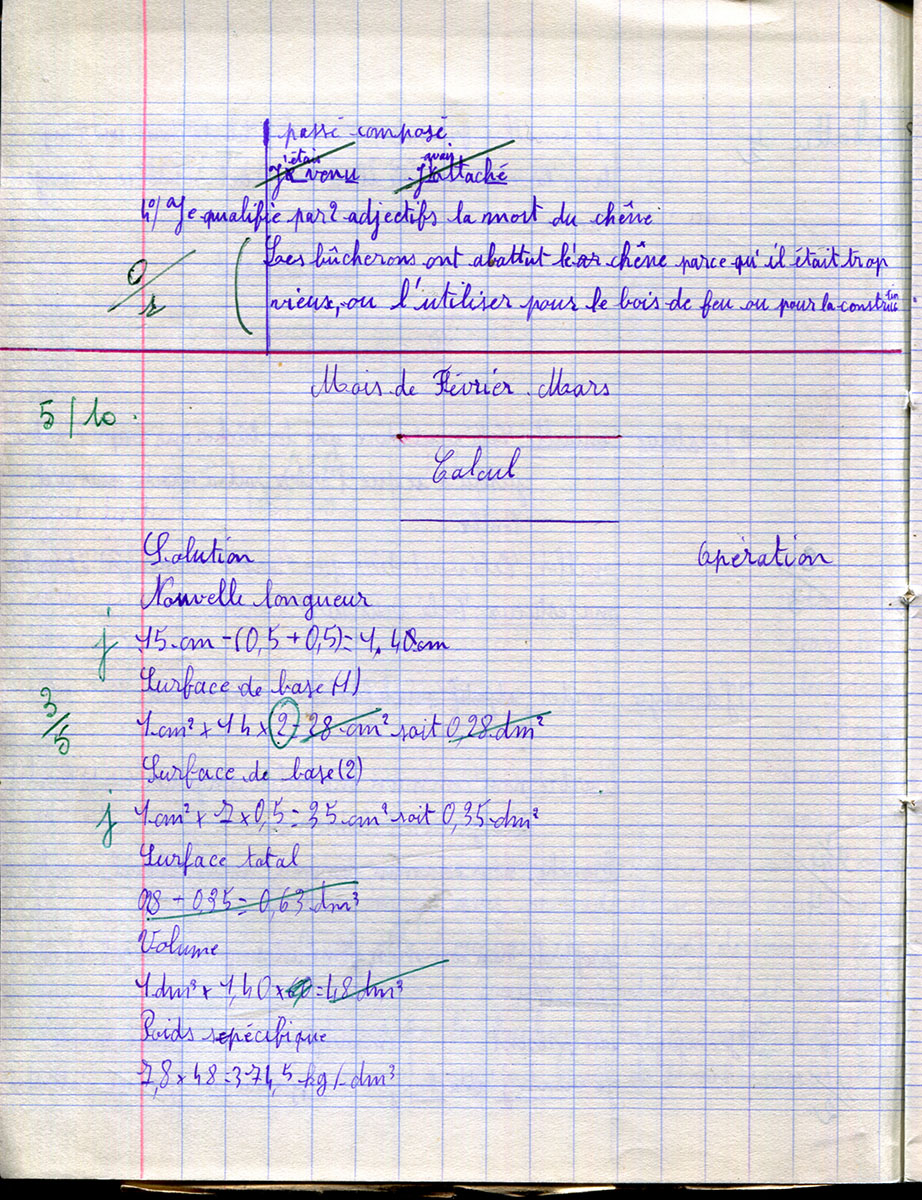 passé composé
j'étais venu j'avais attaché
4°/ a Je qualifie par 2 adjectifs la mort du chêne
0/2
Les bûcherons ont abattut le chêne parce qu'il était trop
vieux, ou l'utiliser pour le bois de feu ou pour la construction
Mois de Février. Mars
5/10.
Calcul
Solution Opération
Nouvelle longueur
j 15 cm - (0,5 + 0,5) = 1,40 cm
Surface de base (1)
3/5
1 cm² x 14 x 2 = 28 cm² soit 0,28 dm²
Surface de base (2)
j 1 cm² x 7 x 0,5 = 35 cm² soit 0,35 dm²
Surface total
28 + 0,35 = 0,63 dm³
Volume
1 dm³ x 1,40 x = 48 dm³
Poids spécifique
7,8 x 48 = 374,5 kg/dm³